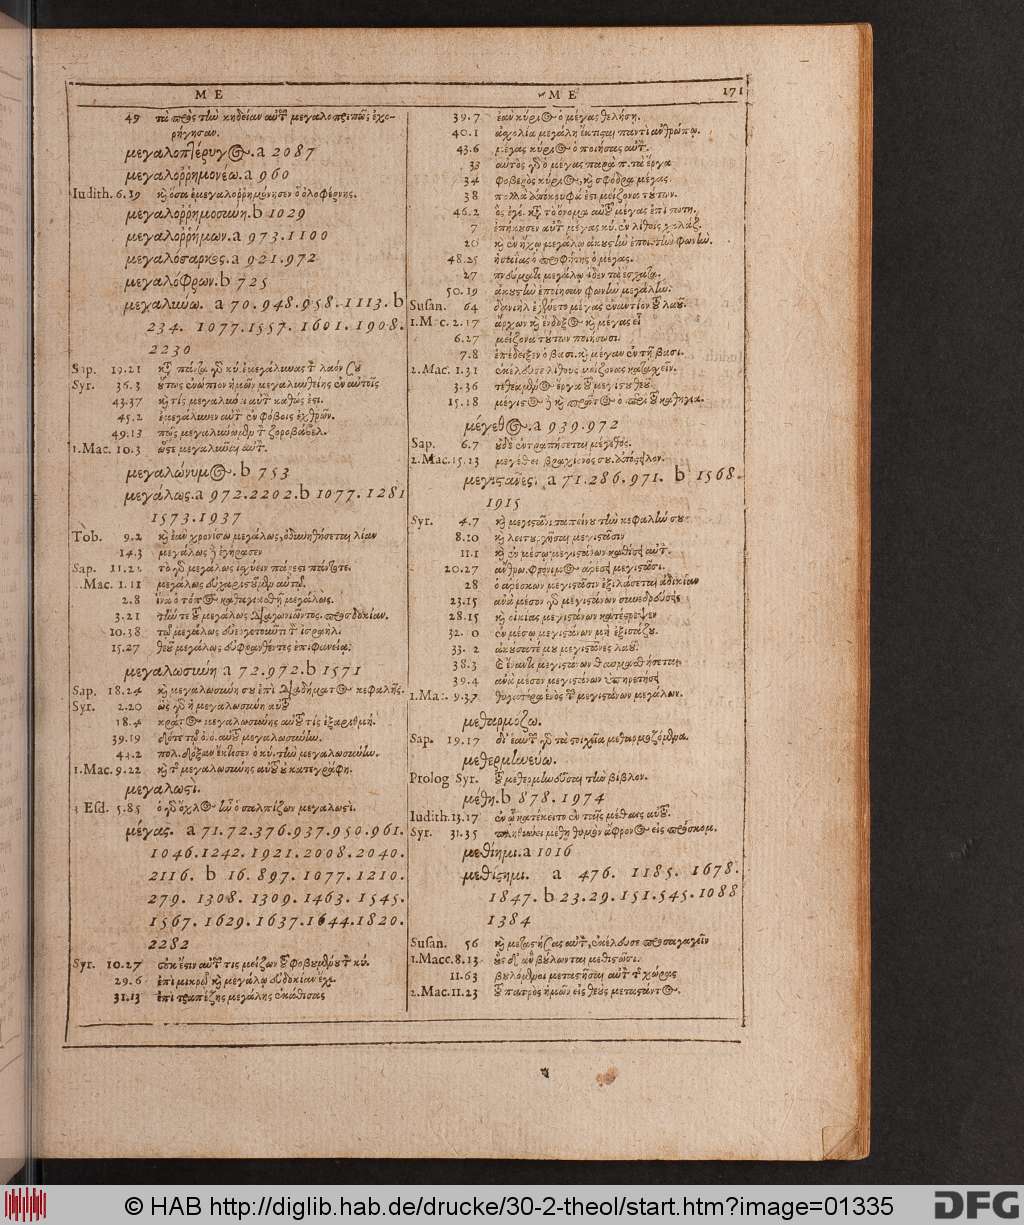 M E
M E
171
49 τὰ πρὸς τὴν κηδείαν αὐτοῦ μεγαλοπρεπῶς ἐχο-
ρήγησαν.
μεγαλοπτέρυγος. a 2087
μεγαλοῤῥημονέω. a 960
Iudith. 6.19 καὶ ὅσα ἐμεγαλοῤῥημόνησεν ὁ ὀλοφέρνης.
μεγαλοῤῥημοσύνη. b 1029
μεγαλοῤῥήμων. a 973.1100
μεγαλόσαρκος. a 921.972
μεγαλόφρων. b 725
μεγαλύνω. a 70.948.958.1113. b
234. 1077.1557. 1601. 1908.
2230
Sap. 19.21 λαόν σου
Syr. 36.3 οὕτως ἐνώπιον ἡμῶν μεγαλυνθείης ἐν αὐτοῖς
43.37 καὶ τίς μεγαλυνεῖ αὐτὸν καθώς ἐστι.
45.2 ἐμεγάλυνεν αὐτὸν ἐν φόβοις ἐχθρῶν.
49.13 πῶς μεγαλύνωμεν τὸν ζοροβάβελ.
1.Mac. 10.3 ὥστε μεγαλῦναι αὐτόν.
μεγαλώνυμος. b 753
μεγάλως. a 972.2202. b 1077. 1281
1573.1937
Tob. 9.2 καὶ ἐὰν χρονίσω μεγάλως, ὀδυνηθήσεται λίαν
14.3 μεγάλως
Sap. 11.22 τὸ γὰρ μεγάλως ἰσχύειν πάρεστι πάντοτε.
.Mac. 1.11 μεγάλως εὐχαριστοῦμεν αὐτῷ.
2.8 ἵνα ὁ τόπος καθαγιασθῇ μεγάλως.
3.21 τήν τε τοῦ μεγάλως διαγωνιῶντος προσδοκίαν.
10.38 τῷ μεγάλως εὐεργετοῦντι τὸν ἰσραήλ.
15.27 θεοῦ μεγάλως εὐφρανθέντες ἐπιφανείᾳ.
μεγαλωσύνη a 72.972. b 1571
Sap. 18.24 καὶ μεγαλωσύνη σου ἐπὶ διαδήματος κεφαλῆς.
Syr. 2.20 ὡς γὰρ ἡ μεγαλωσύνη αὐτοῦ
18.4 κράτος μεγαλωσύνης αὐτοῦ τίς ἐξαριθμή.
39.19 δότε τῷ ὀ.ό. αὐτοῦ μεγαλωσύνην.
44.2 πολ. δόξαν ἔκτισεν ὁ κύ. τὴν μεγαλωσύνην.
1.Mac. 9.22 καὶ τῆς μεγαλωσύνης αὐτοῦ οὐ κατεγράφη.
μεγαλωστί.
3 Esd. 5.85 ὁ γὰρ ὄχλος ἦν ὁ σαλπίζων μεγαλωστί.
μέγας. a 71.72.376.937.950.961.
1046.1242. 1921.2008.2040.
2116. b 16. 897. 1077. 1210.
279. 1308. 1309. 1463. 1545.
1567. 1629. 1637.1644.1820.
2282
Syr. 10.27 οὐκ ἔστιν αὐτῶν τις μείζων τοῦ φοβουμένου τὸν κύ.
29.6 ἐπὶ μικρῷ καὶ μεγάλῳ εὐδοκίαν ἔχε.
31.13 ἐπὶ τραπέζης μεγάλης ἐκάθισας
39.7 ἐὰν κύριος ὁ μέγας θελήσῃ.
40.1 ἀσχολία μεγάλη ἔκτισται παντὶ ἀνθρώπῳ.
43.6 μέγας κύριος ὁ ποιήσας αὐτόν.
33 αὐτὸς γὰρ ὁ μέγας παρὰ π. τὰ ἔργα
34 φοβερὸς κύριος, καὶ σφόδρα μέγας.
38 πολλὰ ἀπόκρυφά ἐστι μείζονα τούτων.
46.2 ὃς ἐγέ. κατὰ τὸ ὄνομα αὐτοῦ μέγας ἐπὶ σωτη.
7 ἐπήκουσεν αὐτὸν μέγας κύ. ἐν λίθοις χαλάζ.
20 καὶ ἐν ἤχῳ μεγάλῳ ἀκουστὴν ἐποί. τὴν φωνήν.
48.25 ἡσαΐας ὁ προφήτης ὁ μέγας.
27 πνεύματι μεγάλῳ ἴδεν τὰ ἔσχατα.
50.19 ἀκουστὴν ἐποίησαν φωνὴν μεγάλην.
Susan. 64 δανιὴλ ἐγένετο μέγας ἐναντίον τοῦ λαοῦ.
1.Mac. 2.17 ἄρχων καὶ ἔνδοξος καὶ μέγας εἶ
6.27 μείζονα τούτων ποιήσωσι.
7.8 ἐπέδειξεν ὁ βασι. καὶ μέγαν ἐν τῇ βασι.
2.Mac. 1.31 ἐκέλευσε λίθους μείζονας κατασχεῖν.
3.36 τεθεαμένος ἔργα τοῦ μεγίστου θεοῦ.
15.18 μέγιστος δὲ καὶ πρῶτος ὁ περὶ τοῦ καθηγια.
μέγεθος. a 939.972
Sap. 6.7 οὐδὲ ἐντραπήσεται μέγεθος.
2.Mac. 15.23 μεγέθει βραχίονός σου.
μεγιστᾶνες. a 71.286.971. b 1568.
1915
Syr. 4.7 καὶ μεγιστᾶνι ταπείνου τὴν κεφαλήν σου
8.10 καὶ λειτουργῆσαι μεγιστᾶσιν
11.1 καὶ ἐν μέσῳ μεγιστάνων καθίσει αὐτόν.
20.27 ἄνθρω. φρόνιμος ἀρέσει μεγιστᾶσι.
28 ὁ ἀρέσκων μεγιστᾶσιν ἐξιλάσεται ἀδικίαν
23.15 ἀνὰ μέσον γὰρ μεγιστάνων συνεδρεύσεις
28.15 καὶ οἰκίας μεγιστάνων κατέστρεψεν
32.10 ἐν μέσῳ μεγιστάνων μὴ ἐξισάζου.
33. 2 ἀκούσατέ μου μεγιστᾶνες λαοῦ.
38.3 καὶ ἔναντι μεγιστάνων θαυμασθήσεται
39.4 ἀνὰ μέσον μεγιστάνων ὑπηρετήσει
1.Mac. 9.37 θυγατέρα ἑνὸς τῶν μεγιστάνων μεγάλων.
μεθαρμόζω.
Sap. 19.17 δι' ἑαυτῶν γὰρ τὰ στοιχεῖα μεθαρμοζόμενα.
μεθερμηνεύω.
Prolog Syr. τοῦ μεθερμηνεῦσαι τὴν βίβλον.
μέθη. b 878.1974
Iudith. 13.17 ἐν ᾧ κατέκειτο ἐν ταῖς μέθαις αὐτοῦ.
Syr. 31.35 πληθύνει μέθη θυμὸν ἄφρονος εἰς πρόσκομ.
μεθίημι. a 1016
μεθίστημι. a 476. 1185. 1678.
1847. b 23.29.151.545.1088
1384
Susan. 56 καὶ μεταστήσας αὐτόν, ἐκέλευσε προσαγαγεῖν
1.Macc. 8.13 οὓς δ' ἂν βούλωνται μεθιστῶσι.
11.63 βουλόμενοι μεταστῆσαι αὐτὸν τῆς χώρας
2.Mac. 11.23 τοῦ πατρὸς ἡμῶν εἰς θεοὺς μεταστάντος.
© HAB http://diglib.hab.de/drucke/30-2-theol/start.htm?image=01335
DFG